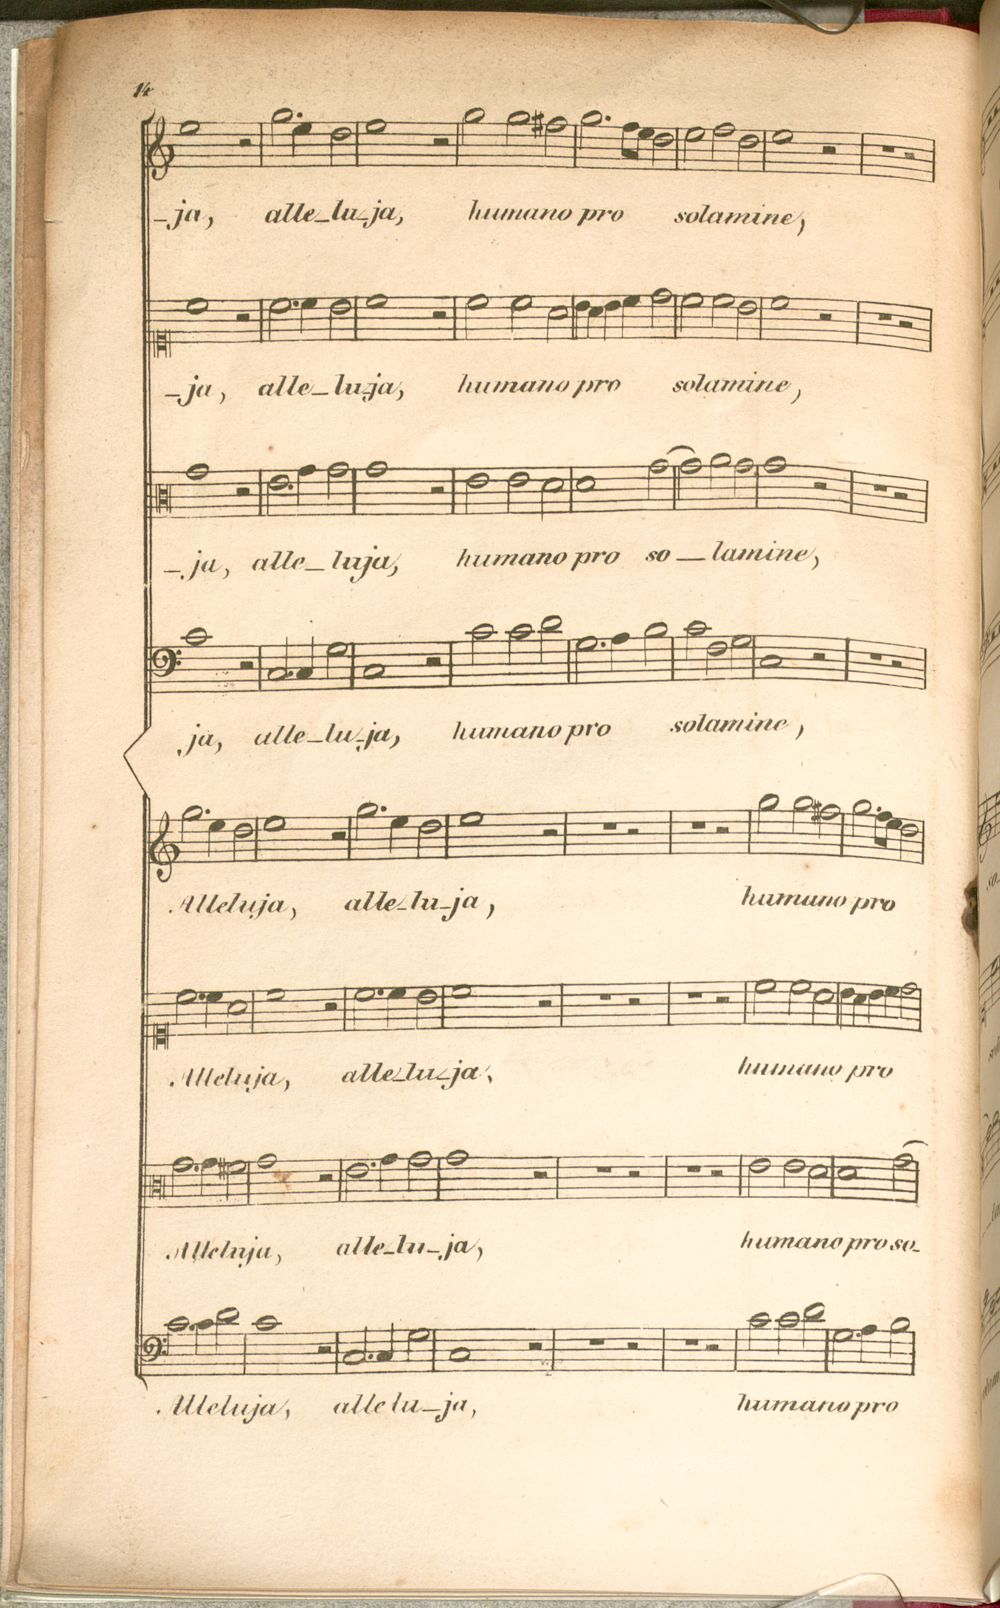 14
-ja, alle-lu-ja, humano pro solamine,
-ja, alle-lu-ja, humano pro solamine,
-ja, alle-luja, humano pro so-lamine,
ja, alle-lu-ja, humano pro solamine,
Alleluja, alle-lu-ja, humano pro
Alleluja, alle-lu-ja, humano pro
Alleluja, alle-lu-ja, humano pro so-
Alleluja, alle lu-ja, humano pro